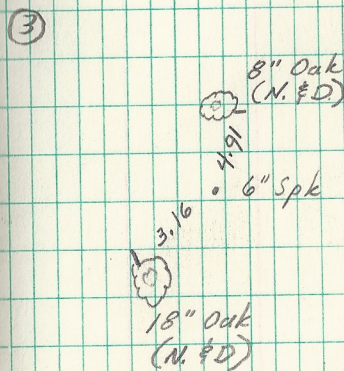 3
8" Oak
(N. & D.)
4.91
6" Spk
3.16
18" Oak
(N. & D)